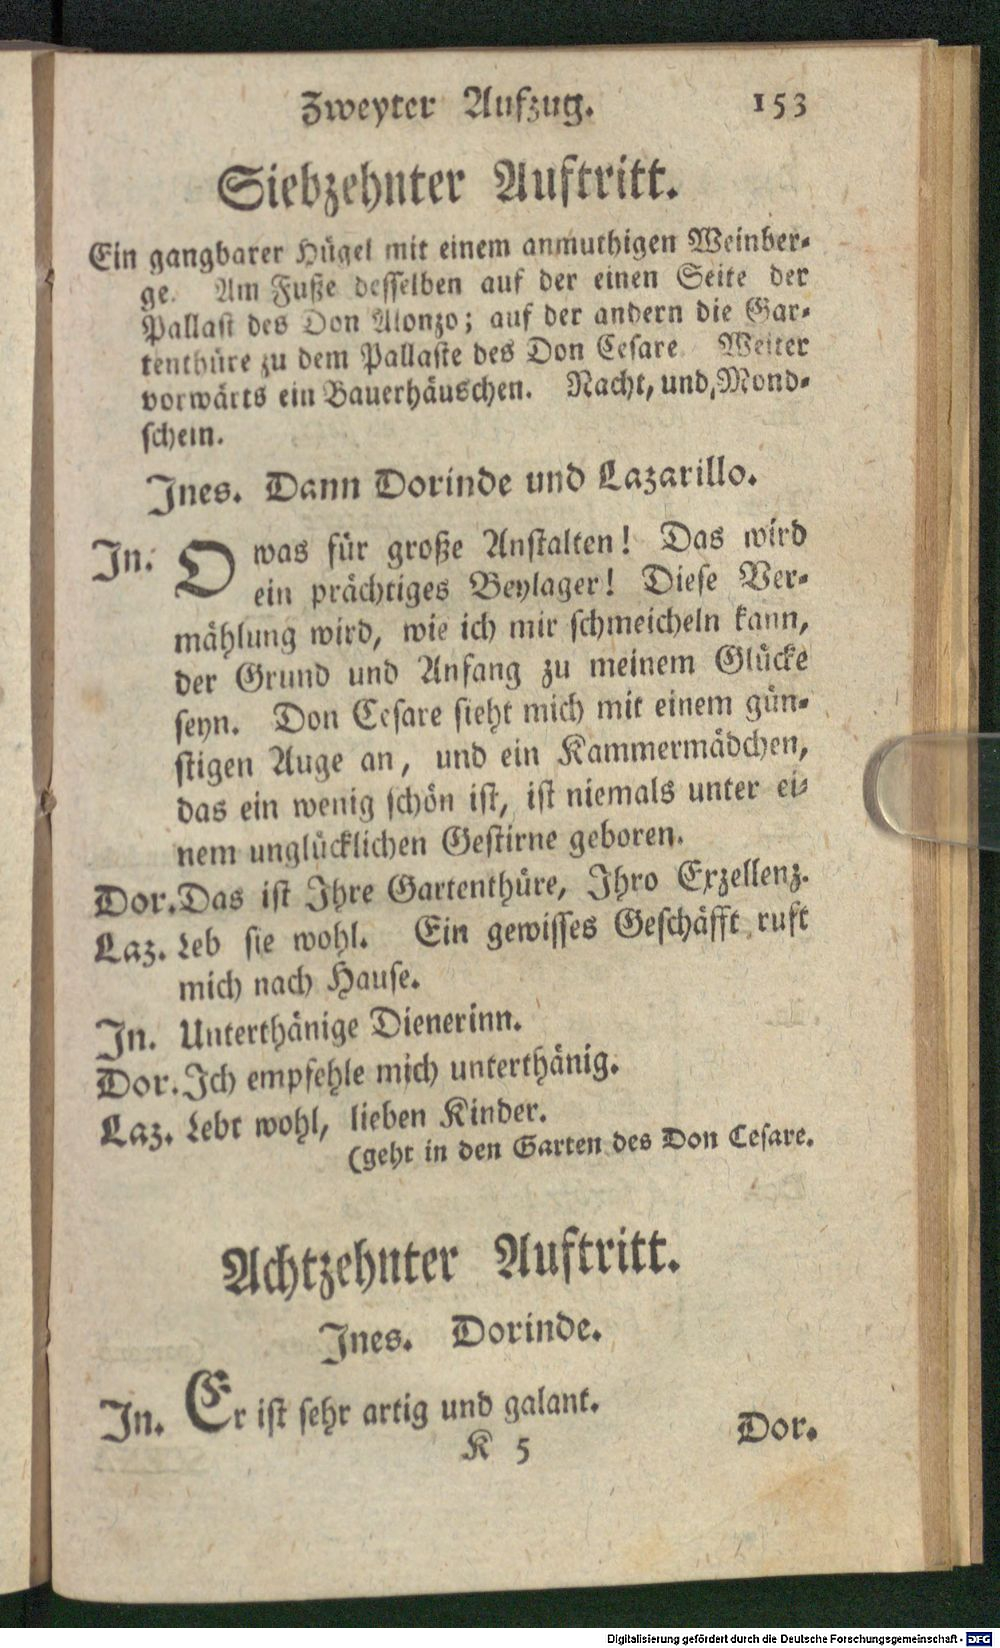 Zweyter Aufzug. 153
Siebzehnter Auftritt.
Ein gangbarer Hügel mit einem anmuthigen Weinber-
ge. Am Fuße desselben auf der einen Seite der
Pallast des Don Alonzo; auf der andern die Gar-
tenthüre zu dem Pallaste des Don Cesare. Weiter
vorwärts ein Bauerhäuschen. Nacht, und Mond-
schein.
Ines. Dann Dorinde und Lazarillo.
In. O was für große Anstalten! Das wird
ein prächtiges Beylager! Diese Ver-
mählung wird, wie ich mir schmeicheln kann,
der Grund und Anfang zu meinem Glücke
seyn. Don Cesare sieht mich mit einem gün-
stigen Auge an, und ein Kammermädchen,
das ein wenig schön ist, ist niemals unter ei-
nem unglücklichen Gestirne geboren.
Dor. Das ist Ihre Gartenthüre, Ihro Exzellenz.
Laz. Leb sie wohl. Ein gewisses Geschäfft ruft
mich nach Hause.
In. Unterthänige Dienerinn.
Dor. Ich empfehle mich unterthänig.
Laz. Lebt wohl, lieben Kinder.
(geht in den Garten des Don Cesare.
Achtzehnter Auftritt.
Ines. Dorinde.
In. Er ist sehr artig und galant.
K 5 Dor.
Digitalisierung gefördert durch die Deutsche Forschungsgemeinschaft - DFG